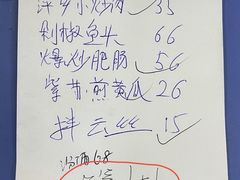 萍乡小炒肉 35
剁椒鱼头 66
爆炒肥肠 56
紫苏煎黄瓜 26
拌三丝 15
汾酒 68